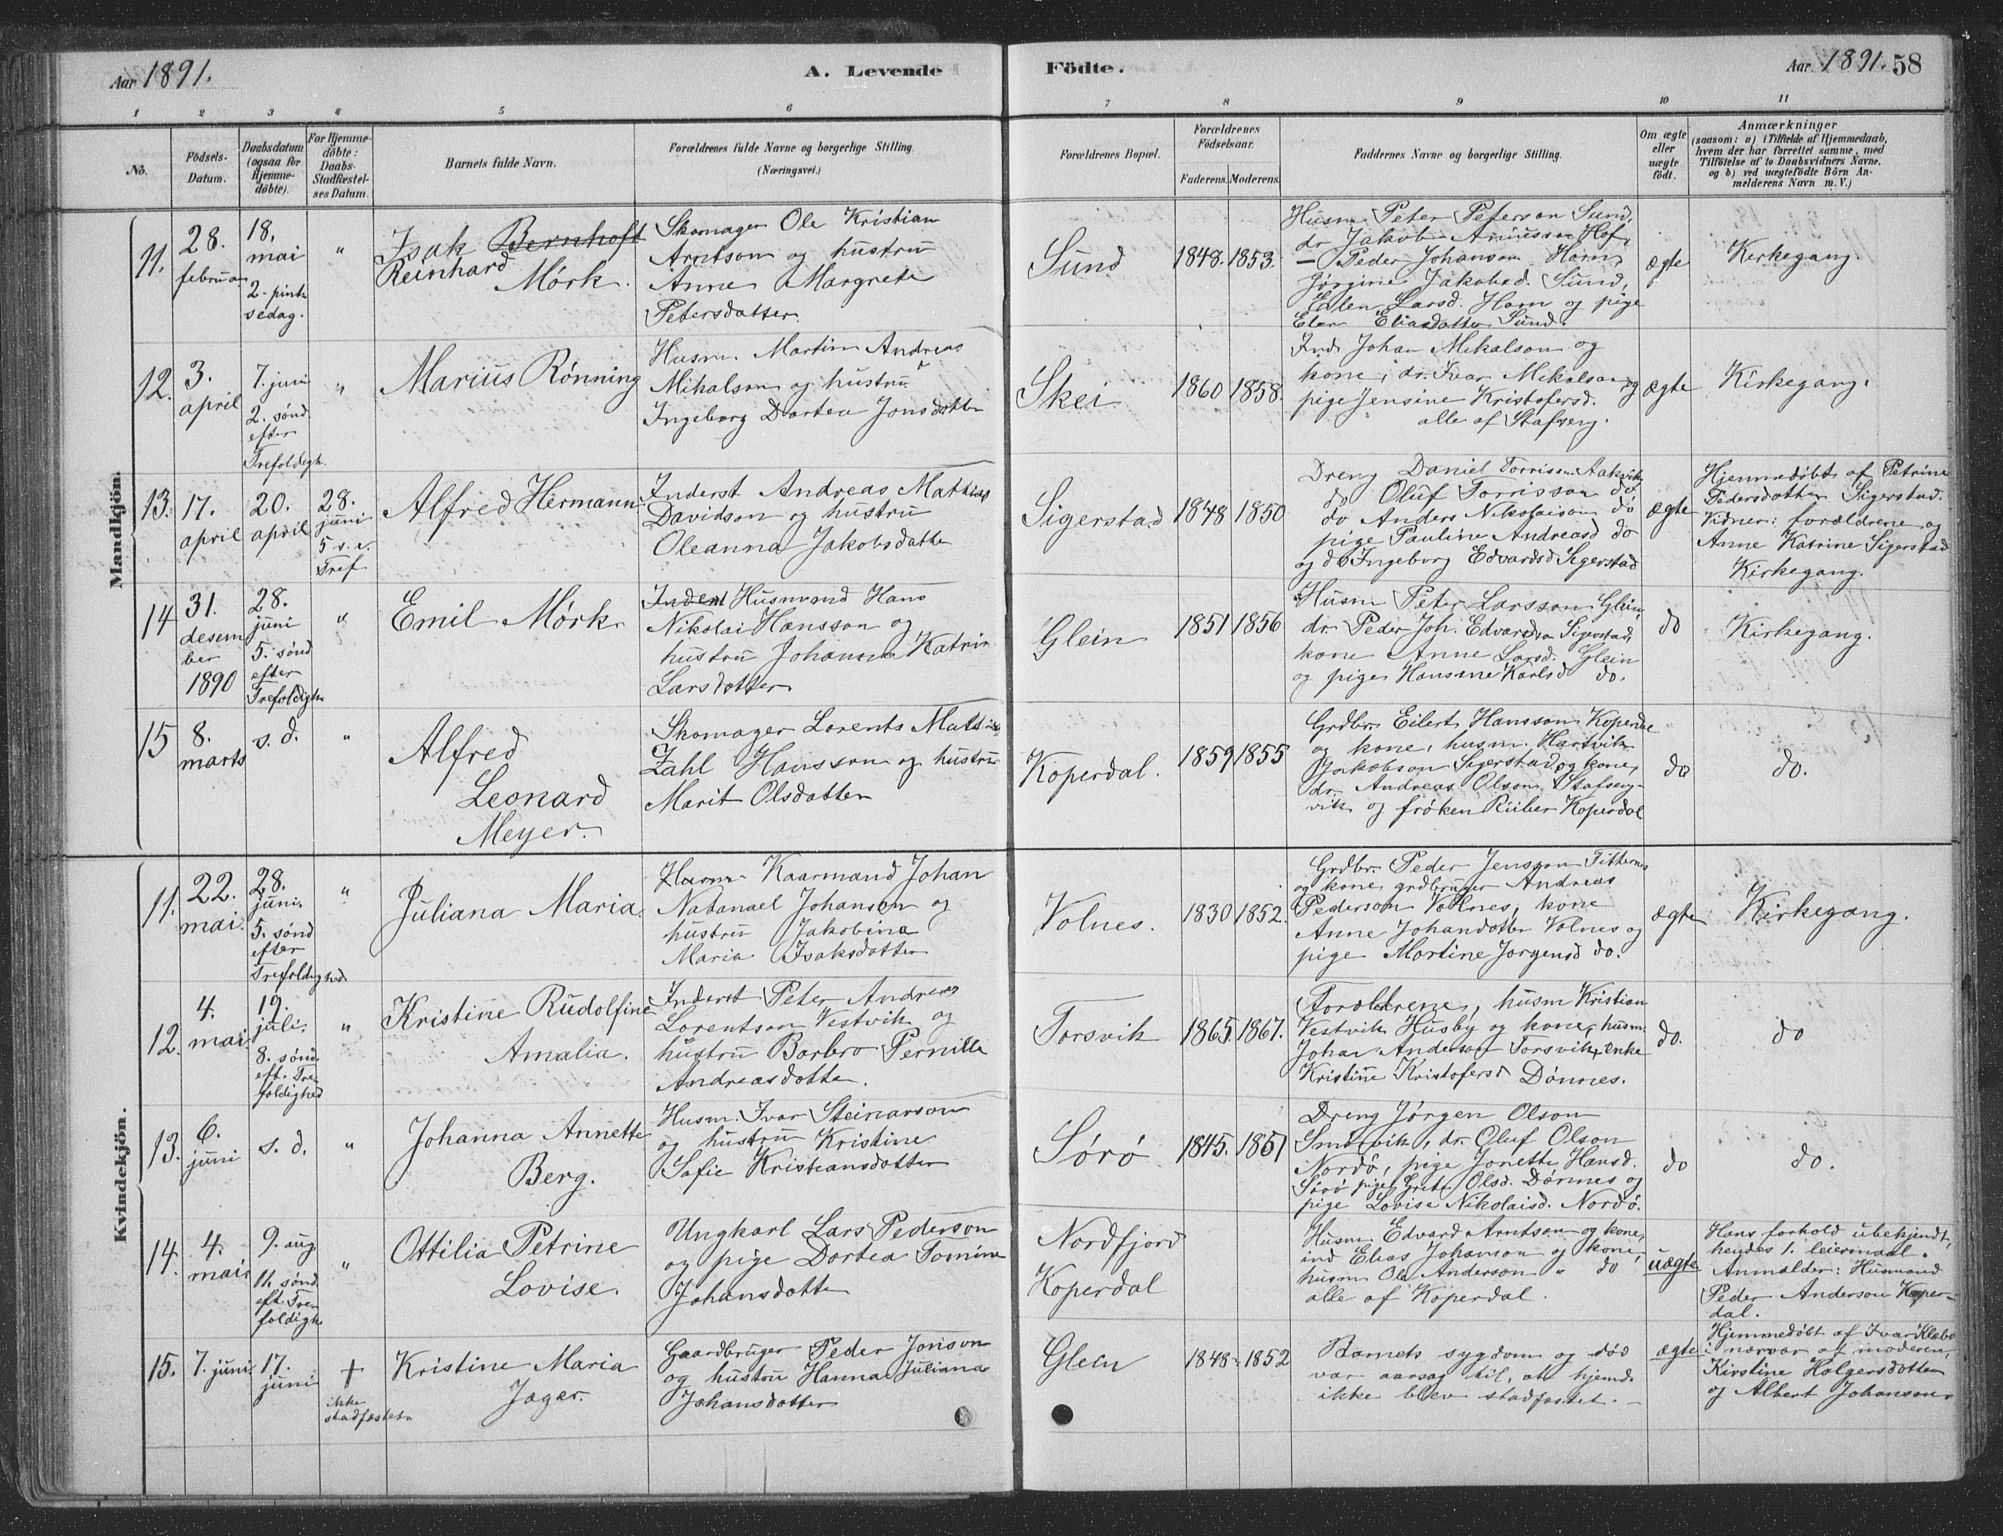 Aar 1891.
A. Levende
Födte.
Aar 1891. 58
1 2 3 4 5 6 7 8 9 10 11
No.
Födsels-
Datum.
Daabsdatum
(ogsaa for
Hjemme-
døbte).
For Hjemme-
døbte:
Daabs-
Stadfæstel-
ses Datum.
Barnets fulde Navn.
Forældrenes fulde Navne og borgerlige Stilling.
(Næringsvei.)
Forældrenes Bopæl.
Forældrenes
Födselsaar.
Faderens. Moderens.
Faddernes Navne og borgerlige Stilling.
Om ægte
eller
uægte
födt.
Anmærkninger
(saasom: a) i Tilfælde af Hjemmedaab,
hvem der har forrettet samme, med
Tilföielse af to Daabsvidners Navne,
og b) ved uægtefödte Börn An-
melderens Navn m. V.)
Mandkjön.
11.
28.
februar
18.
mai
2. pints
sedag.
"
Isak Bernhoft
Reinhard
Mørk.
Skomager Ole Kristian
Arntson og hustru
Anne Margrete
Petersdatter.
Sund
1848. 1853.
Husm. Peter Peterson Sund,
dr. Jakob Hof,
— Peder Johanson Horn
Jørgine Jakobsd. Sund,
Ellen Larsd. Horn og pige
Elen Eliasdatter Sund.
ægte
Kirkegang.
12.
3.
april
7. juni
2. sønd.
efter
Trefoldigh.
"
Marius Rønning
Husm. Martin Andreas
Mikalson og hustru
Ingeborg Dortea Jonsdatter
Skei
1860 1858.
Ind. Johan Mikalson og
kone, dr. Ivar Mikalson og
pige Jensine Kristofersd.
alle af Stafseng.
ægte
Kirkegang.
13.
17.
april
20.
april
28.
juni
5 s. e.
Tref
Alfred Hermann
Inderst Andreas Mathias
Davidson og hustru
Oleanna Jakobsdatter
Sigerstad
1848 1850
Dreng Daniel Torrisson Aakvik
do Oluf Torrisson do
do Anders Nikolaison do
pige Pauline Andreasd do
og do Ingeborg Edvardsd Sigerstad
ægte
Hjemmedøbt af Petrine
Pedersdatter Sigerstad.
Vidner: forældrene og
Anne Katrine Sigerstad
Kirkegang.
14
31.
desem
ber
1890
28.
juni
5. sønd
efter
Trefoldigh.
"
Emil Mørk.
Inderst Husmand Hans
Nikolai Hansson og
hustru Johanna Katrin
Larsdatter
Glein
1851 1856
Husm Peter Larsson Glein,
dr. Peder Joh. Edvardson Sigerstad,
kone Anne Larsd. Glein
og pige Hansine Karlsd do.
do
Kirkegang.
15
8.
marts
s. d.
"
Alfred
Leonard
Meyer.
Skomager Lorents Mathias
Zahl Hansson og hustru
Marit Olsdatter
Koperdal.
1859 1855
Grdbr. Eilert Hansson Koperdal
og kone, husm. Hartvik
Jakobson Sigerstad og kone,
dr. Andreas Olson Stafseng-
vik og frøken Ruber Koperdal
do
do.
Kvindekjön.
11.
22.
mai.
28.
juni.
5. sønd
efter
Trefoldighed.
"
Juliana Maria.
Husm. Kaarmand Johan
Natanael Johanson og
hustru Jakobina
Maria Isaksdatter
Volnes.
1830 1852.
Grdbr. Peder Jensson Titternes
og kone, grdbruger Andreas
Pederson Volnes, kone
Anne Johansdatter Volnes og
pige Martine Jørgensd do.
ægte
Kirkegang.
12.
4.
mai
19.
juli.
8. sønd.
eft. Tre-
foldighed
"
Kristine Rudolfine
Amalia.
Inderst Peter Andreas
Lorentson Vestvik og
hustru Barbro Pernille
Andreasdatter.
Torsvik
1865. 1867.
Forældrene, husm Kristian
Vestvik Husby og kone, husm.
Johan Anderson Torsvik, enke
Kristine Kristofersd Dönnes.
do.
do
13.
6.
juni
s. d.
"
Johanna Annette
Berg.
Husm. Ivar Steinarson
og hustru Kristine
Sofie Kristiansdatter
Sørø
1845. 1851
Dreng Jørgen Olson
Smørvik, dr. Oluf Olson
Nordø, pige Jonette Hansd.
Sørø pige Grete Olsd. Dønnes og
pige Lovise Nikolaisd. Nordø.
do
do.
14.
4.
mai
9. aug.
11. sønd.
eft. Tre-
foldigh.
"
Ottilia Petrine
Lovise.
Ungkarl Lars Pederson
og pige Dortea Tomine
Johansdatter
Nordfjord
Koperdal
Husm Edvard Arntson og kone,
ind Elias Johanson og kone,
husm Ole Anderson " do
alle af Koperdal.
uægte
Hans forhold ubekjendt,
hendes 1. leiermaal.
Anmelder: Husmand
Peder Anderson Koper-
dal.
15.
7. juni
17.
juni
†
ikke
stadfæstet.
Kristine Maria
Jager.
Gaardbruger Peder Jonson
og hustru Hanna Juliana
Johansdatter
Glein
1848 1852
Barnets sygdom og død
var aarsag til, at hjemd.
ikke blev stadfæstet. —
ægte
Hjemmedøbt af Ivar Klæbo
i nærvær af moderen,
Kirstine Holgersdatter
og Albert Johanson.